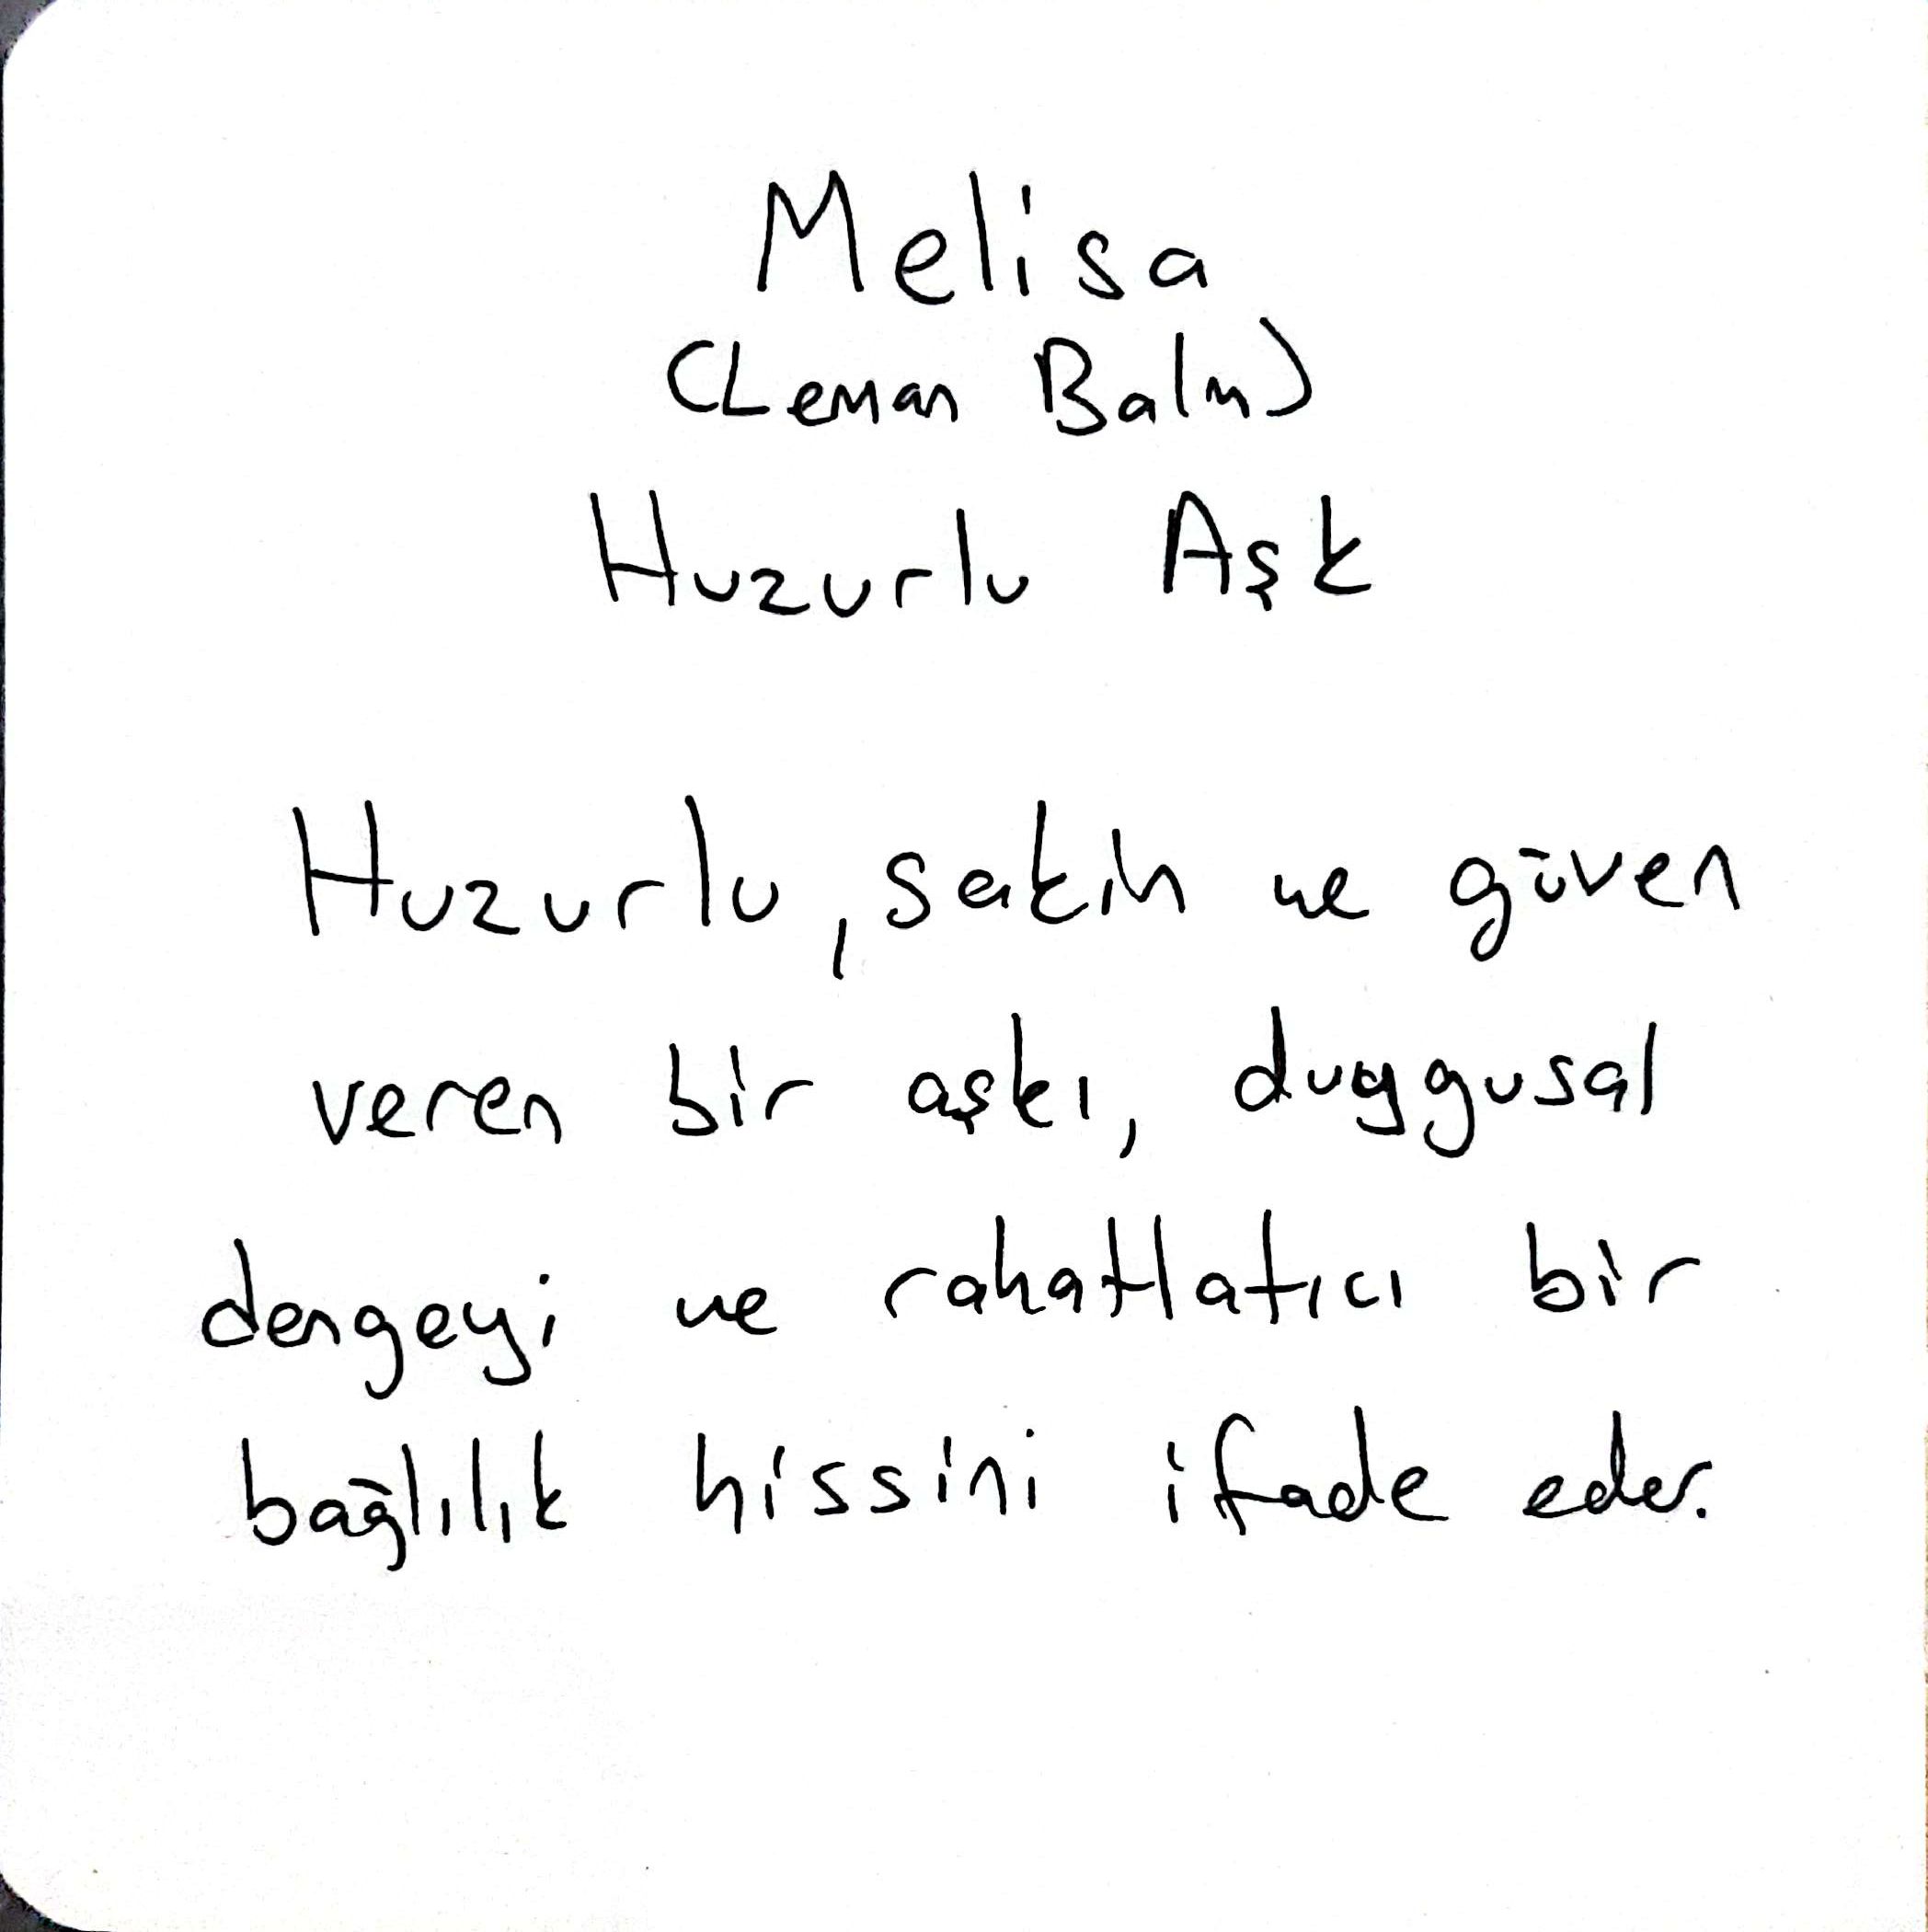 Melisa
(Leman Balm)
Huzurlu Aşk
Huzurlu, sakin ve güven
veren bir aşkı, duygusal
dengeyi ve rahatlatıcı bir
bağlılık hissini ifade eder.